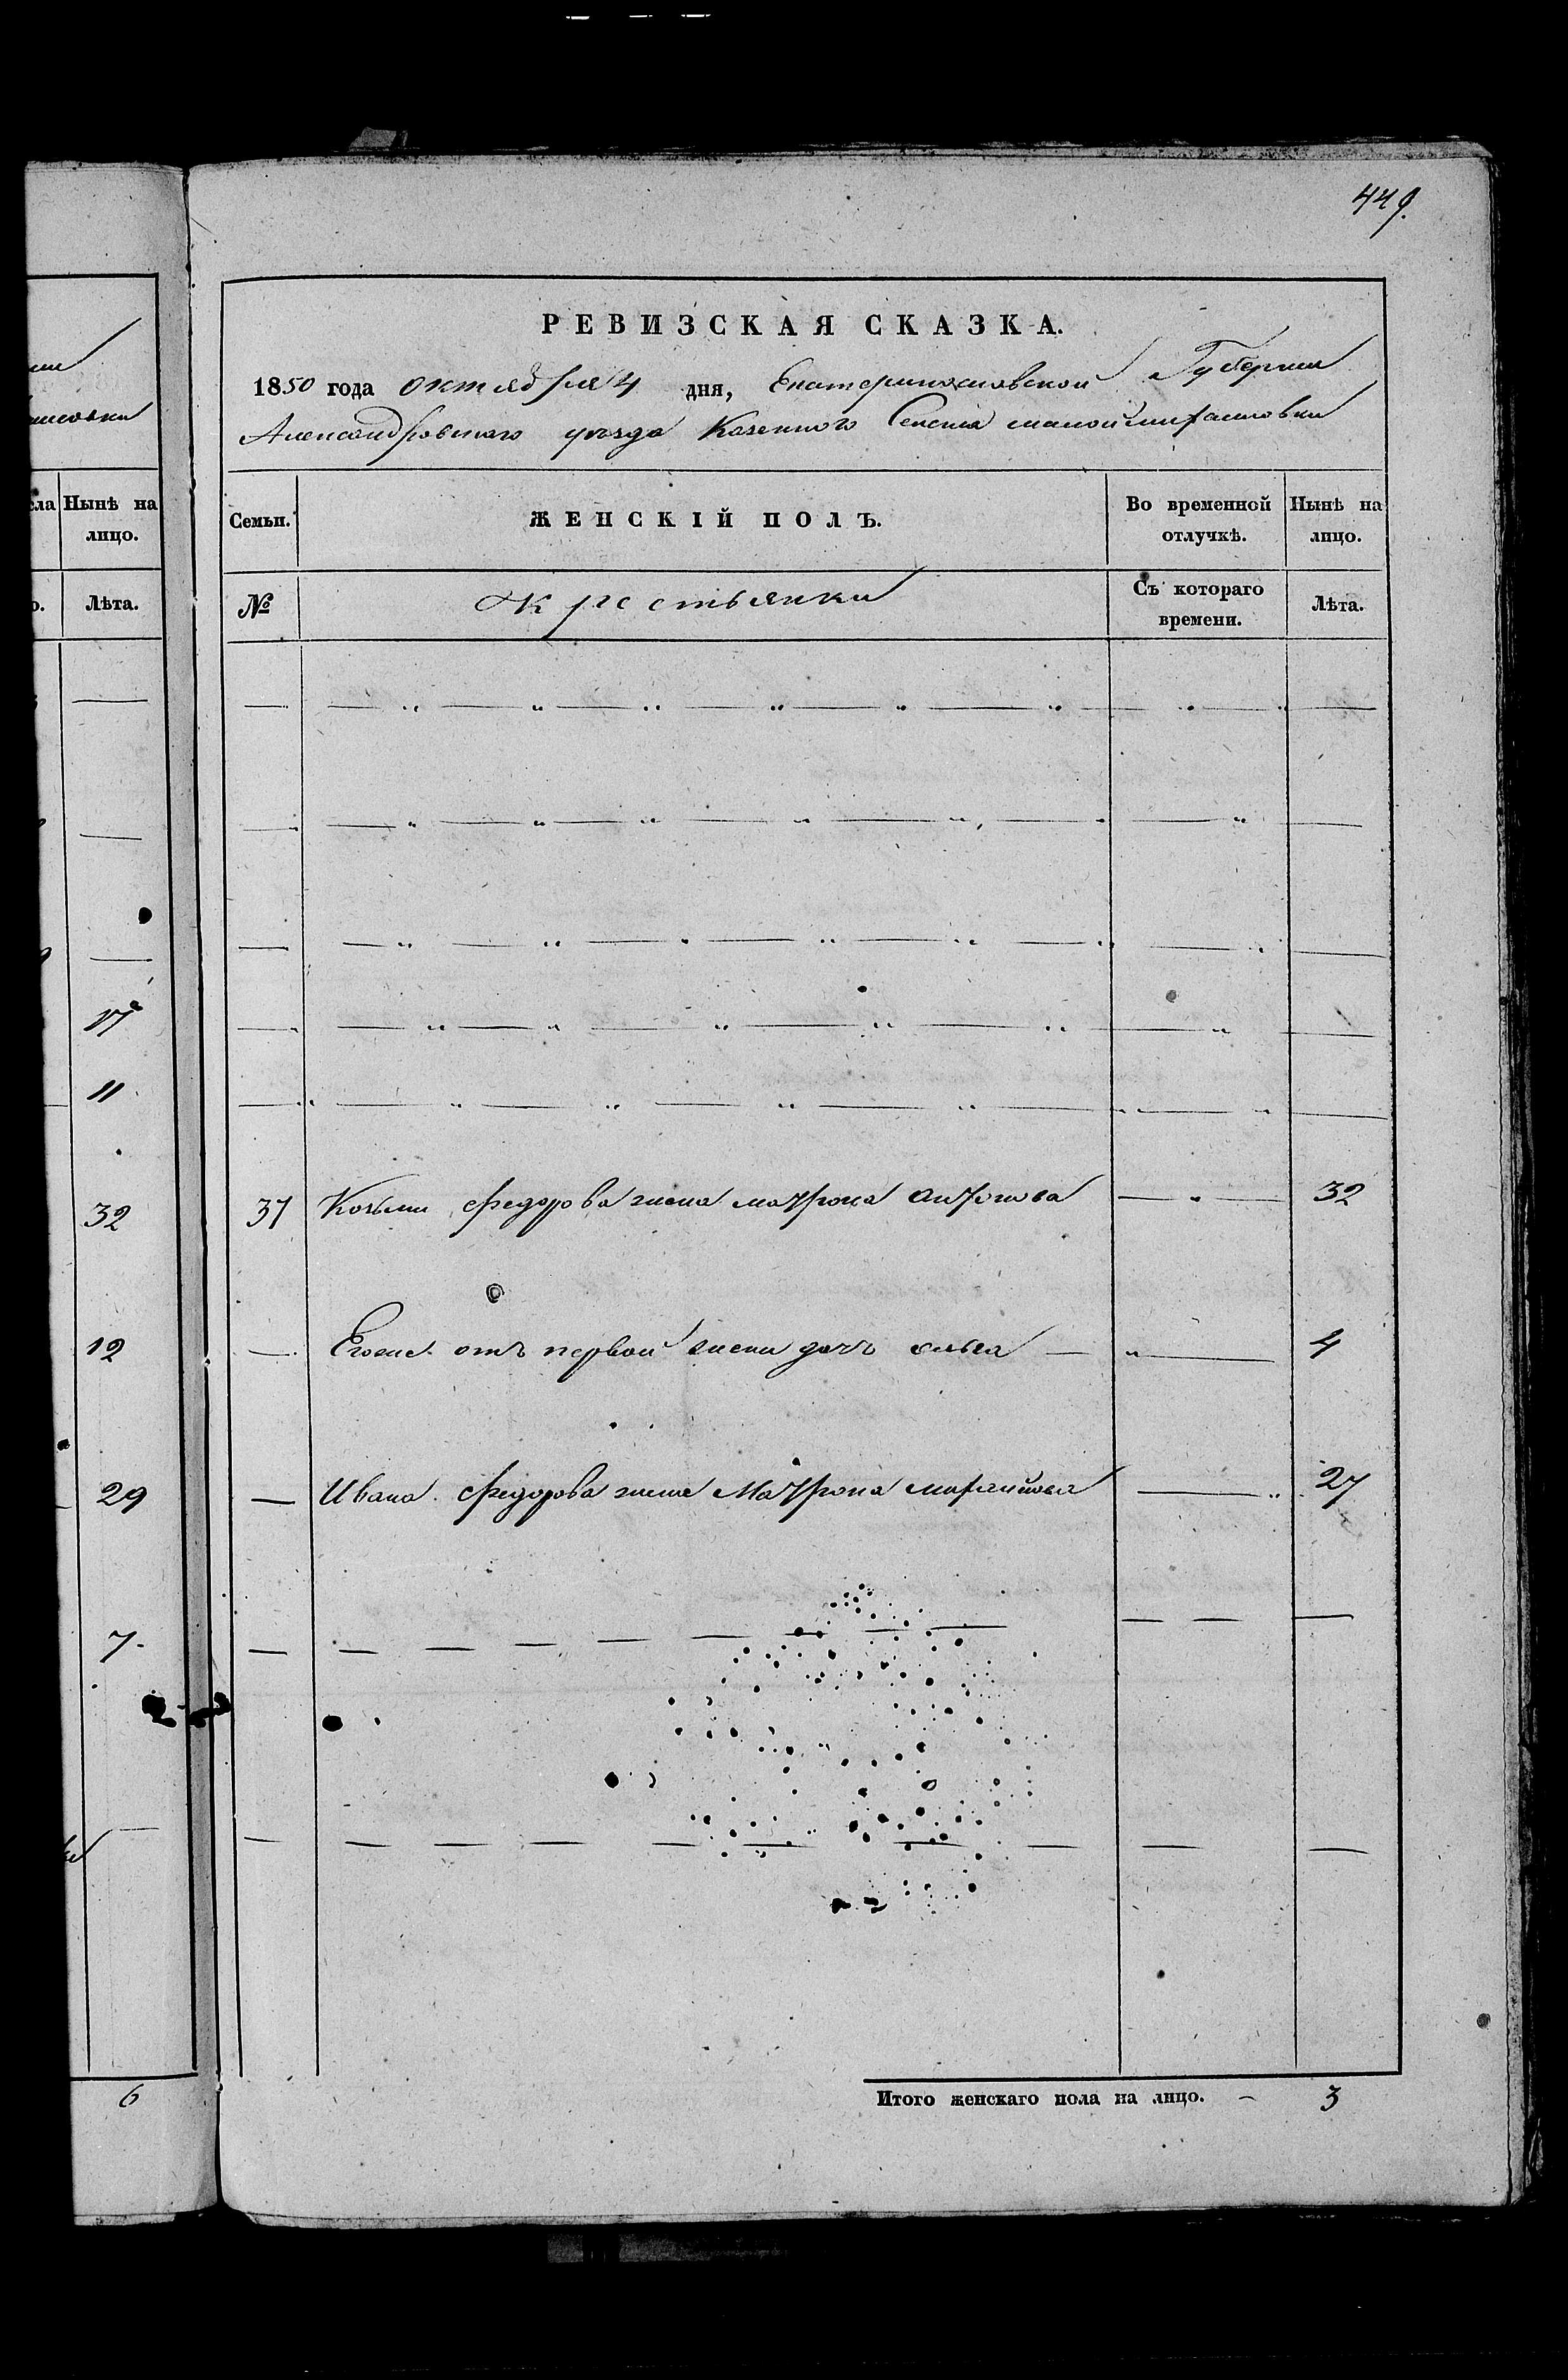 449.
РЕВИЗСКАЯ СКАЗКА.
1850 года октября 4 дня, Екатеринославской Губернии
Александровского уезда Казенного Селения малой михайловки
Семьи.
ЖЕНСКІЙ ПОЛЪ.
Во временной отлучкѣ.
Нынѣ на лицо.
№
Крестьянки
Съ котораго времени.
Лѣта.
37 Козьмы федорова жена матрона антонова 32
Его же отъ первой жены дочь 4
Ивана федорова жена Матрона михайлова 27
Итого женскаго пола на лицо. 3
Нынѣ на
лицо.
Лѣта.
17
11
32
12
29
7
6